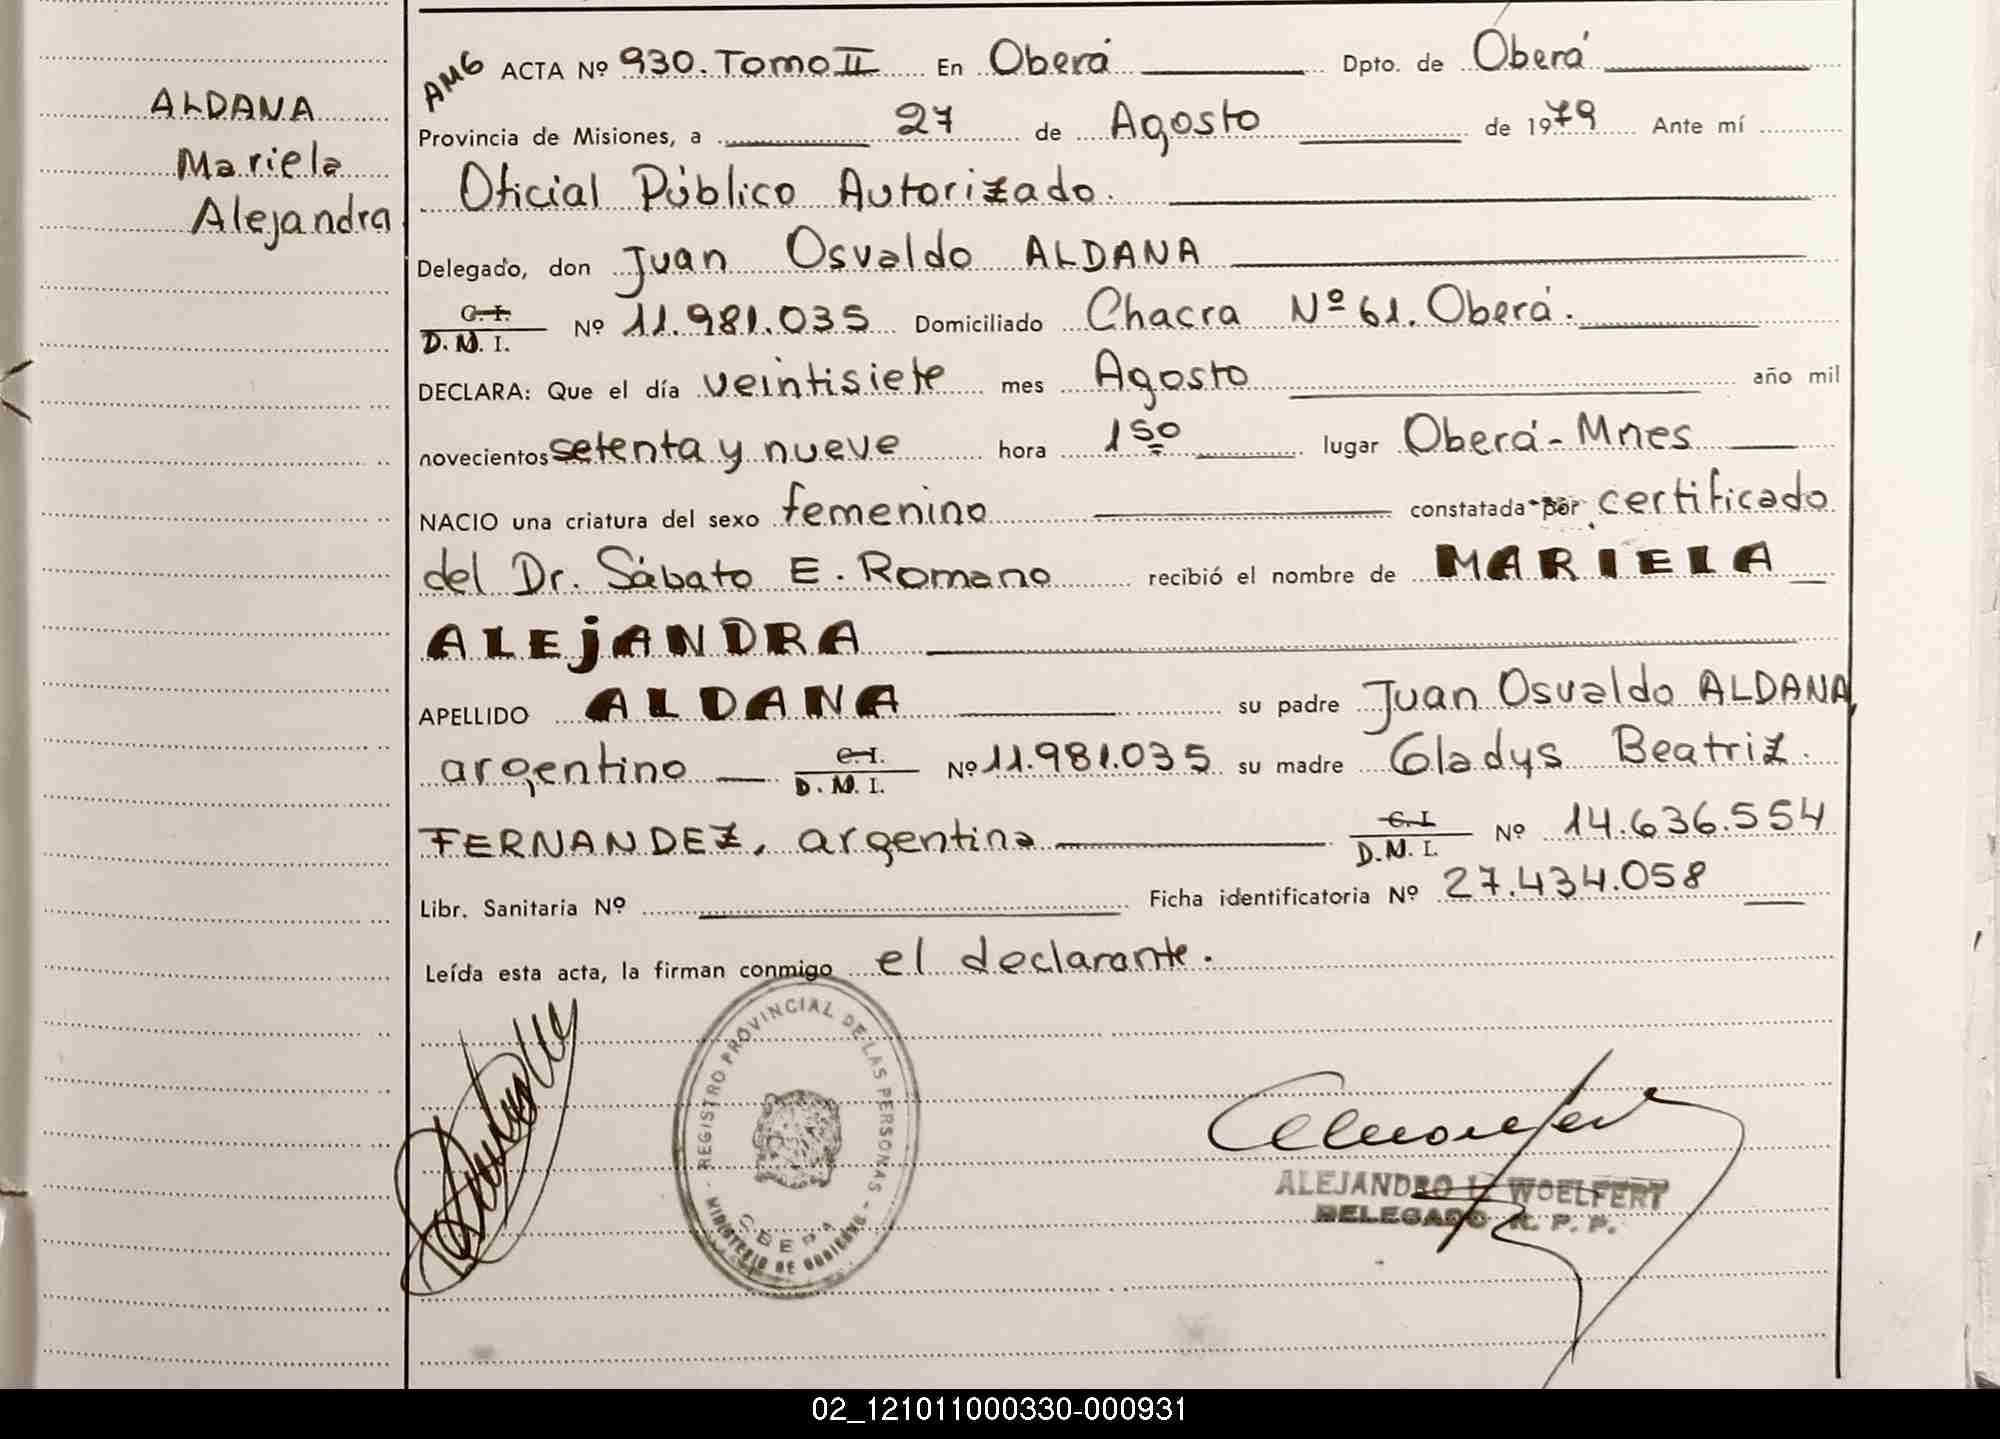 ALDANA
Mariela
Alejandra
AMG ACTA Nº 930. Tomo II En Oberá Dpto. de Oberá
Provincia de Misiones, a 27 de Agosto de 1979 Ante mí
Oficial Público Autorizado.
Delegado, don Juan Osvaldo ALDANA
C. I.
D. N. I. Nº 11.981.035 Domiciliado Chacra Nº 61. Oberá.
DECLARA: Que el día veintisiete mes Agosto año mil
novecientos setenta y nueve hora 1 50 lugar Oberá - Mnes
NACIO una criatura del sexo femenino constatada por certificado
del Dr. Sábato E. Romano recibió el nombre de MARIELA
ALEJANDRA
APELLIDO ALDANA su padre Juan Osvaldo ALDANA,
argentino C. I. D. N. I. Nº 11.981.035 su madre Gladys Beatriz
FERNANDEZ, argentina C. I. D. N. I. Nº 14.636.554
Libr. Sanitaria Nº Ficha identificatoria Nº 27.434.058
Leída esta acta, la firman conmigo el declarante.
REGISTRO PROVINCIAL DE LAS PERSONAS - MINISTERIO DE GOBIERNO -
OBERA
ALEJANDRO L. WOELFERT
DELEGADO R. P. P.
02_121011000330-000931